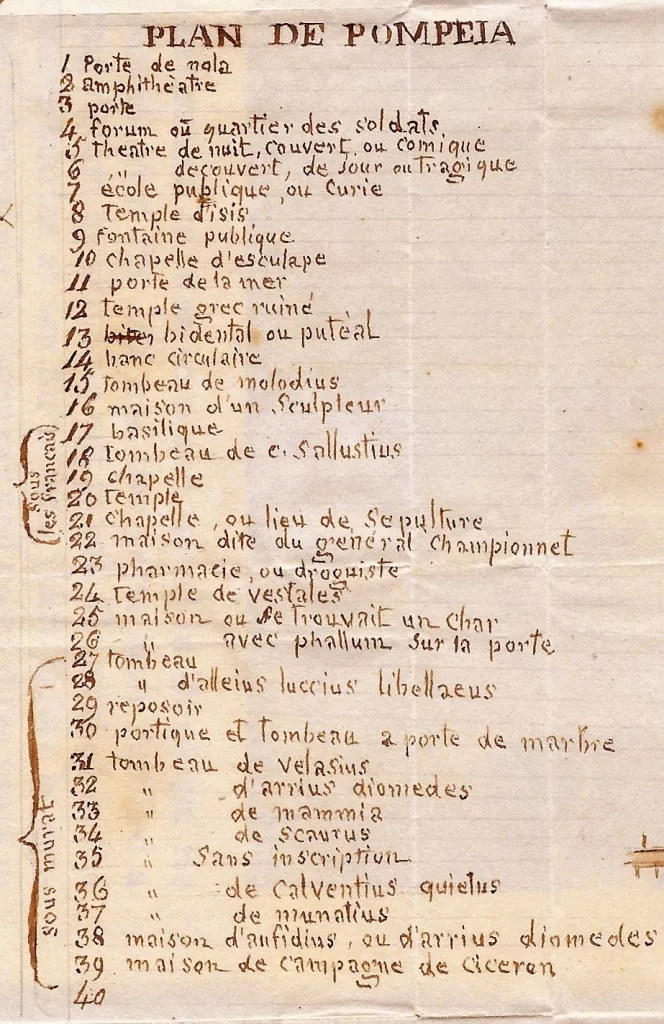 PLAN DE POMPEIA
1 Porte de nola
2 amphithèatre
3 porte
4 forum ou quartier des soldats
5 theatre de nuit, couvert, ou comique
6 " decouvert, de jour ou tragique
7 école publique, ou Curie
8 Temple d'isis
9 fontaine publique
10 chapelle d'esculape
11 porte de la mer
12 temple grec ruiné
13 biter bidental ou putéal
14 banc circulaire
15 tombeau de molodius
16 maison d'un Sculpteur
17 basilique
18 tombeau de c. Sallustius
19 chapelle
20 temple
21 chapelle, ou lieu de Sepulture
22 maison dite du general Championnet
23 pharmacie, ou droguiste
24 Temple de vestales
25 maison ou se trouvait un char
26 " avec phallum sur la porte
27 tombeau
28 " d'alleius luccius libellaeus
29 reposoir
30 portique et tombeau a porte de marbre
31 tombeau de velasius
32 " d'arrius diomedes
33 " de mammia
34 " de scaurus
35 " Sans inscription
36 " de Calventius quietus
37 " de munatius
38 maison d'aufidius, ou d'arrius diomedes
39 maison de Campagne de Ciceron
40
sous
les français
sous murat